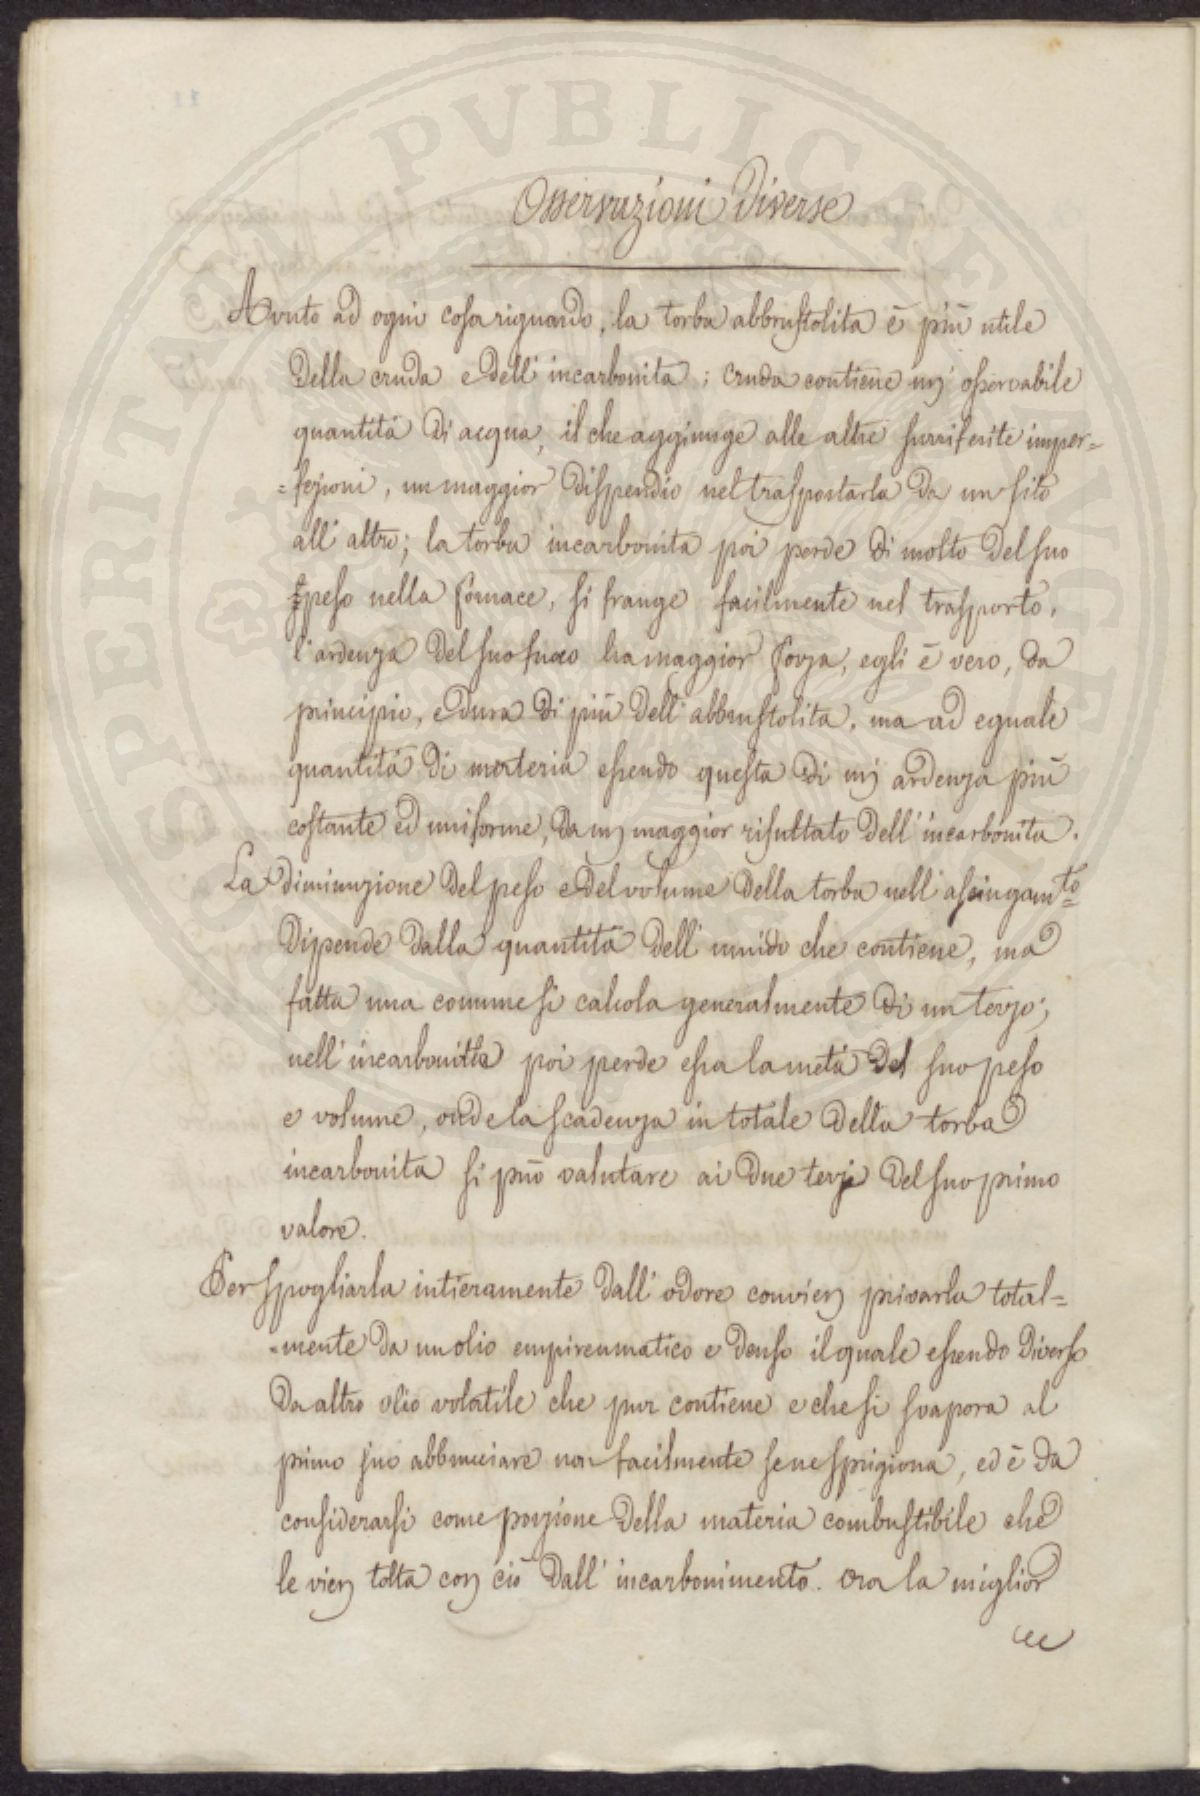 Osservazioni Diverse
Avuto ad ogni cosa riguardo, la torba abbrustolita è più utile
della cruda e dell' incarbonita; cruda contiene un' osservabile
quantità di acqua, il che aggiunge alle altre surriferite imper=
=fezioni, un maggior dispendio nel trasportarla da un sito
all' altro; la torba incarbonita poi perde di molto del suo
peso nella fornace, si frange facilmente nel trasporto,
l'ardenza del suo fuoco ha maggior forza, egli è vero, da
principio, e dura di più dell' abbrustolita, ma ad eguale
quantità di materia essendo questa di un' ardenza più
costante ed uniforme, da un maggior risultato dell' incarbonita.
La diminuzione del peso e del volume della torba nell' asciugamto
dipende dalla quantità dell' umido che contiene, ma
fatta una comune si calcola generalmente di un terzo;
nell' incarbonirla poi perde essa la metà del suo peso
e volume, onde la scadenza in totale della torba
incarbonita si può valutare ai due terzi del suo primo
valore.
Per spogliarla intieramente dall' odore convien privarla total=
=mente da un olio empireumatico e denso il quale essendo diverso
da altro olio volatile che pur contiene e che si svapora al
primo suo abbruciare non facilmente se ne sprigiona, ed è da
considerarsi come porzione della materia combustibile che
le vien tolta con ciò dall' incarbonimento. Ora la miglior
SPERITATI PVBLICAE AVGE